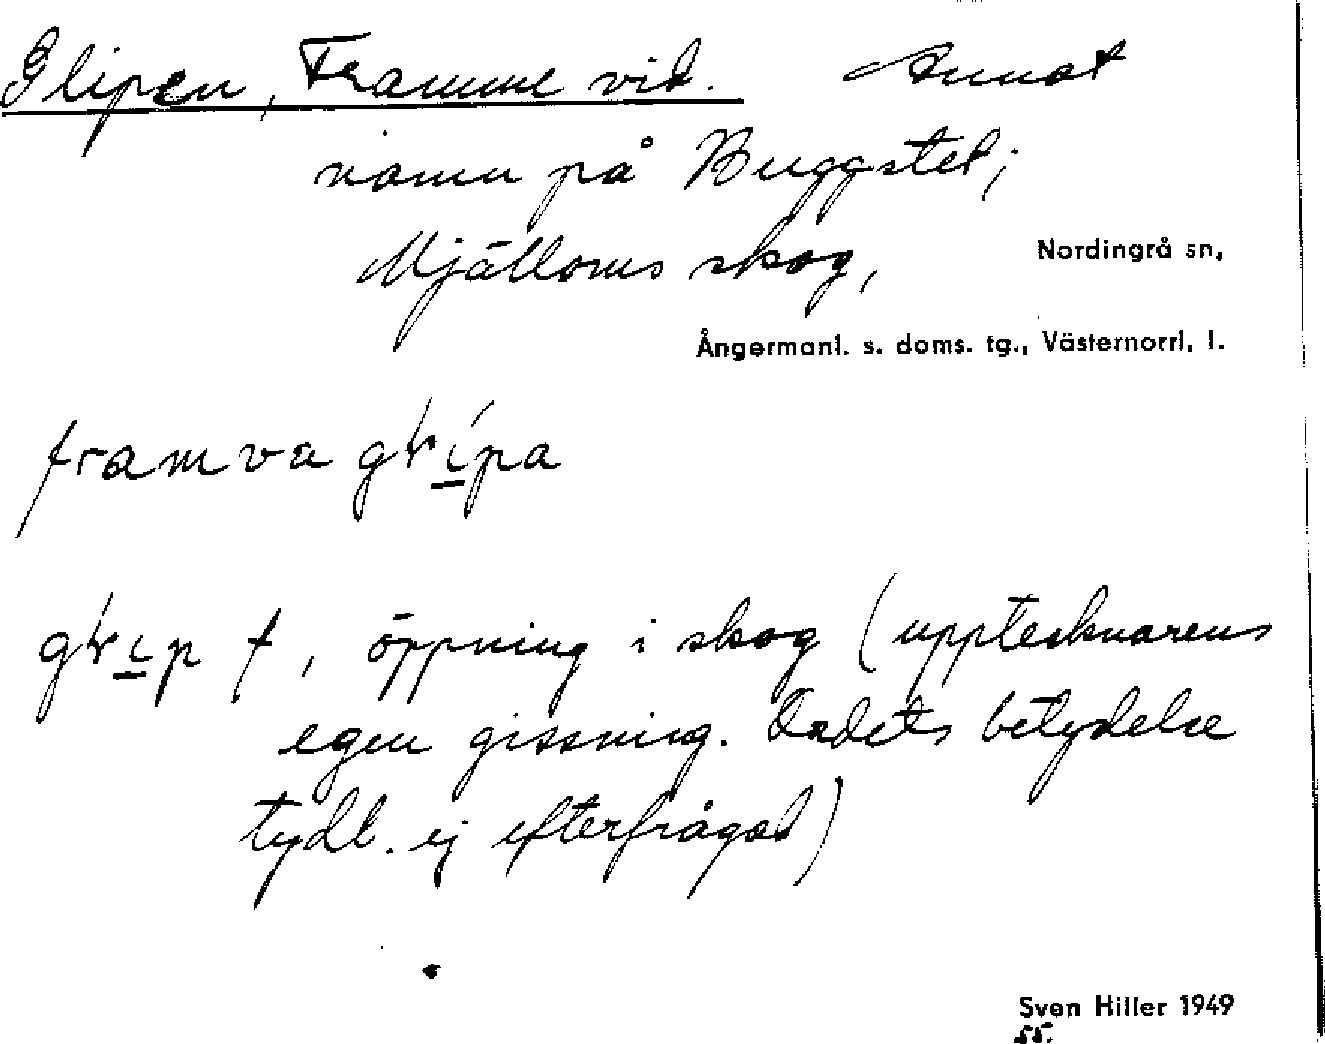 Glipen, Framme vid. Annat
namn på Buggstet;
Mjälloms skog,
Nordingrå sn,
Ångermanl. s. doms. tg., Västernorrl. l.
framva glipa
glip f, öppning i skog (upptecknarens
egen gissning. Ordets betydelse
tydl. ej efterfrågad)
Sven Hiller 1949
55.